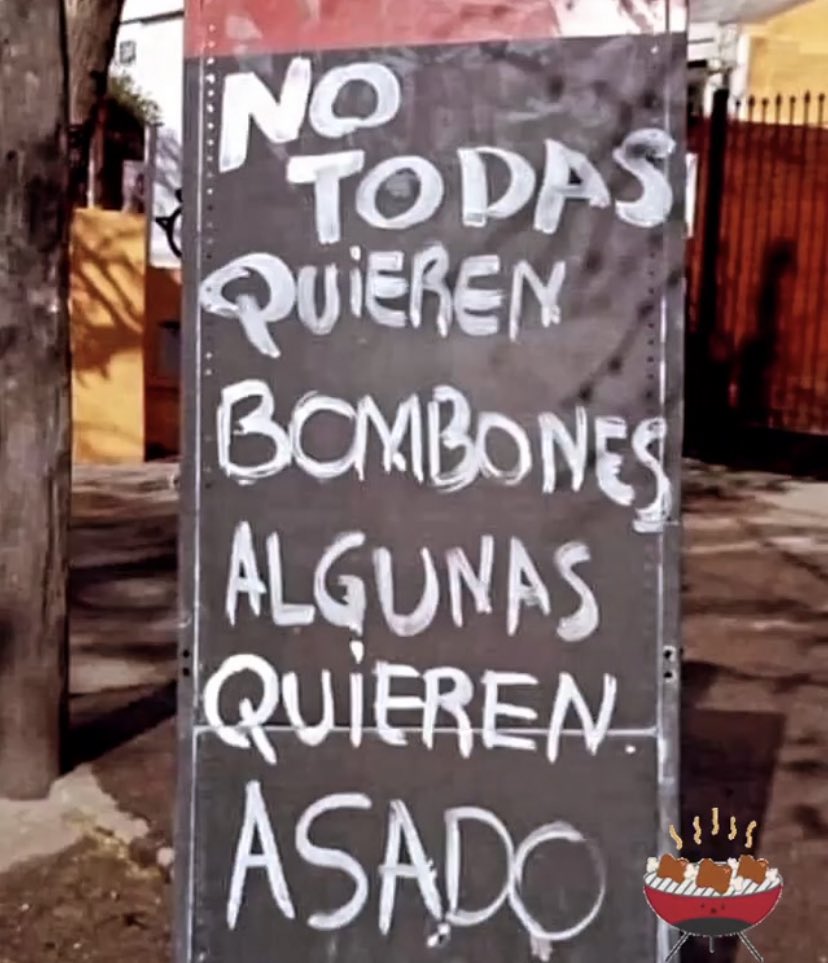 NO
TODAS
QUiEREN
BOMBONES
ALGUNAS
QUiEREN.
ASADO